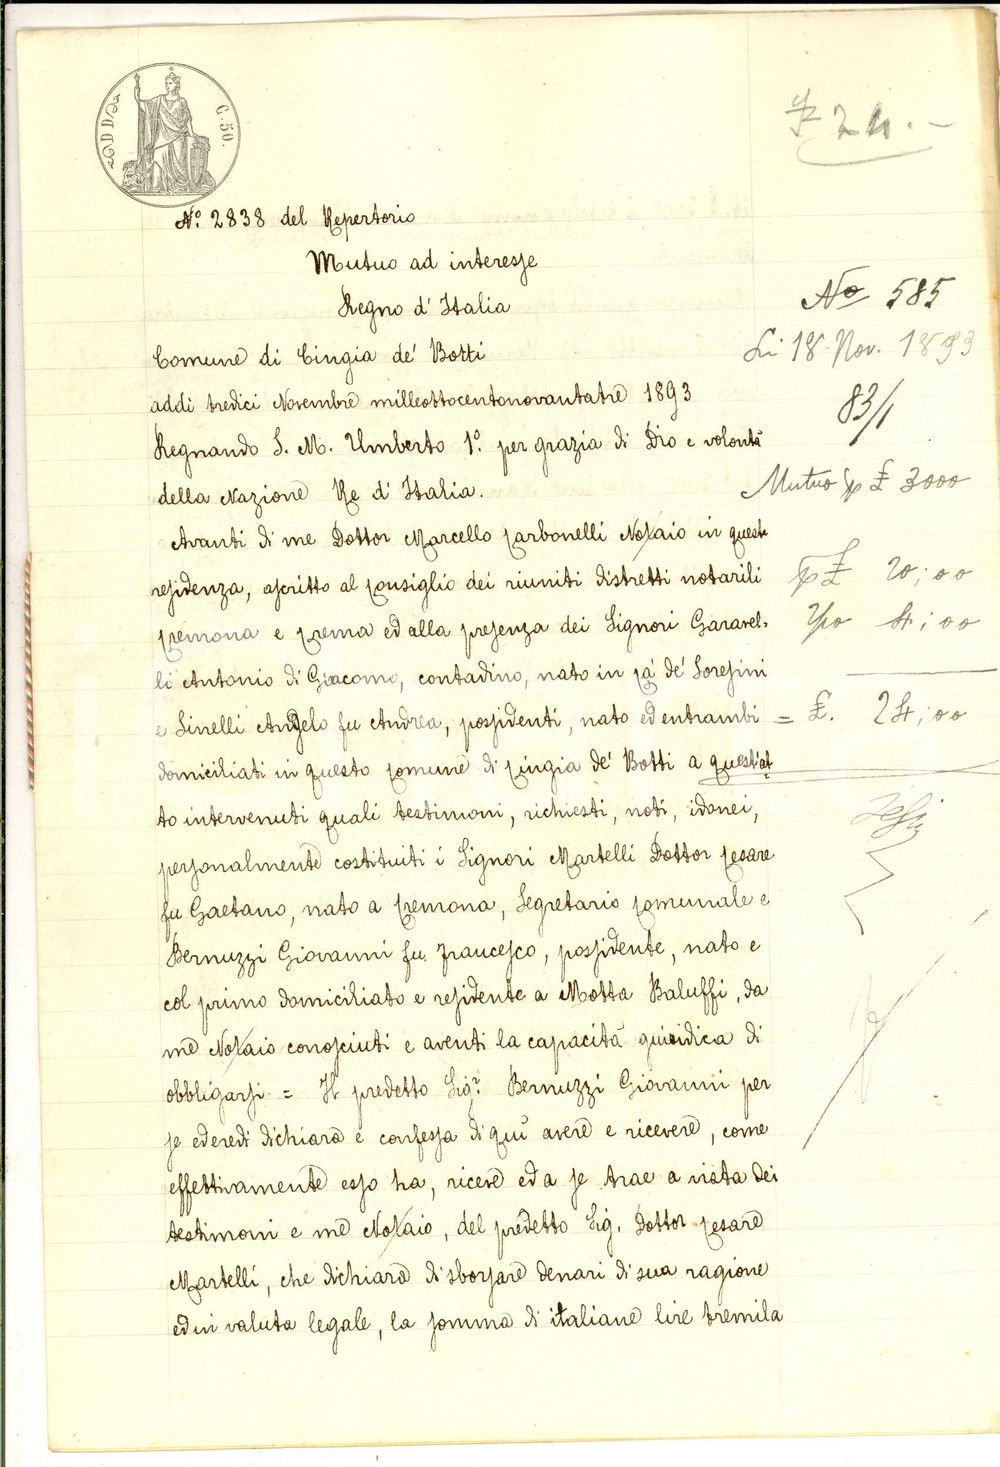 C. 50.
£ 24. -
N.º 2838 del Repertorio
Mutuo ad interesse
Regno d' Italia
Comune di Cingia de' Botti
addi tredici Novembre milleottocentonovantatre 1893
Regnando S. M. Umberto 1.º per grazia di Dio e volontà
della Nazione Re d' Italia.
Avanti di me Dottor Marcello Carbonelli Notaio in questa
residenza, ascritto al Consiglio dei riuniti distretti notarili
Cremona e Crema ed alla presenza dei Signori Garavel-
li Antonio di Giacomo, contadino, nato in Cà de' Soresini
e Sinelli Angelo fu Andrea, possidenti, nato ed entrambi
domiciliati in questo Comune di Cingia de' Botti a quest'at-
to intervenuti quali testimoni, richiesti, noti, idonei,
personalmente costituiti i Signori Martelli Dottor Cesare
fu Gaetano, nato a Cremona, Segretario Comunale e
Bernuzzi Giovanni fu Francesco, possidente, nato e
col primo domiciliato e residente a Motta Baluffi, da
me Notaio conosciuti e aventi la capacità giuridica di
obbligarsi = Il predetto Sig.r Bernuzzi Giovanni per
se ed eredi dichiara e confessa di quì avere e ricevere, come
effettivamente esso ha, riceve ed a se trae a vista dei
testimoni e me Notaio, del predetto Sig. Dottor Cesare
Martelli, che dichiara di sborsare denari di sua ragione
ed in valuta legale, la somma di italiane lire tremila
No 585
Li 18 Nov. 1893
83/1
Mutuo p £ 3000
p £ 20,00
4,00
= £. 24,00